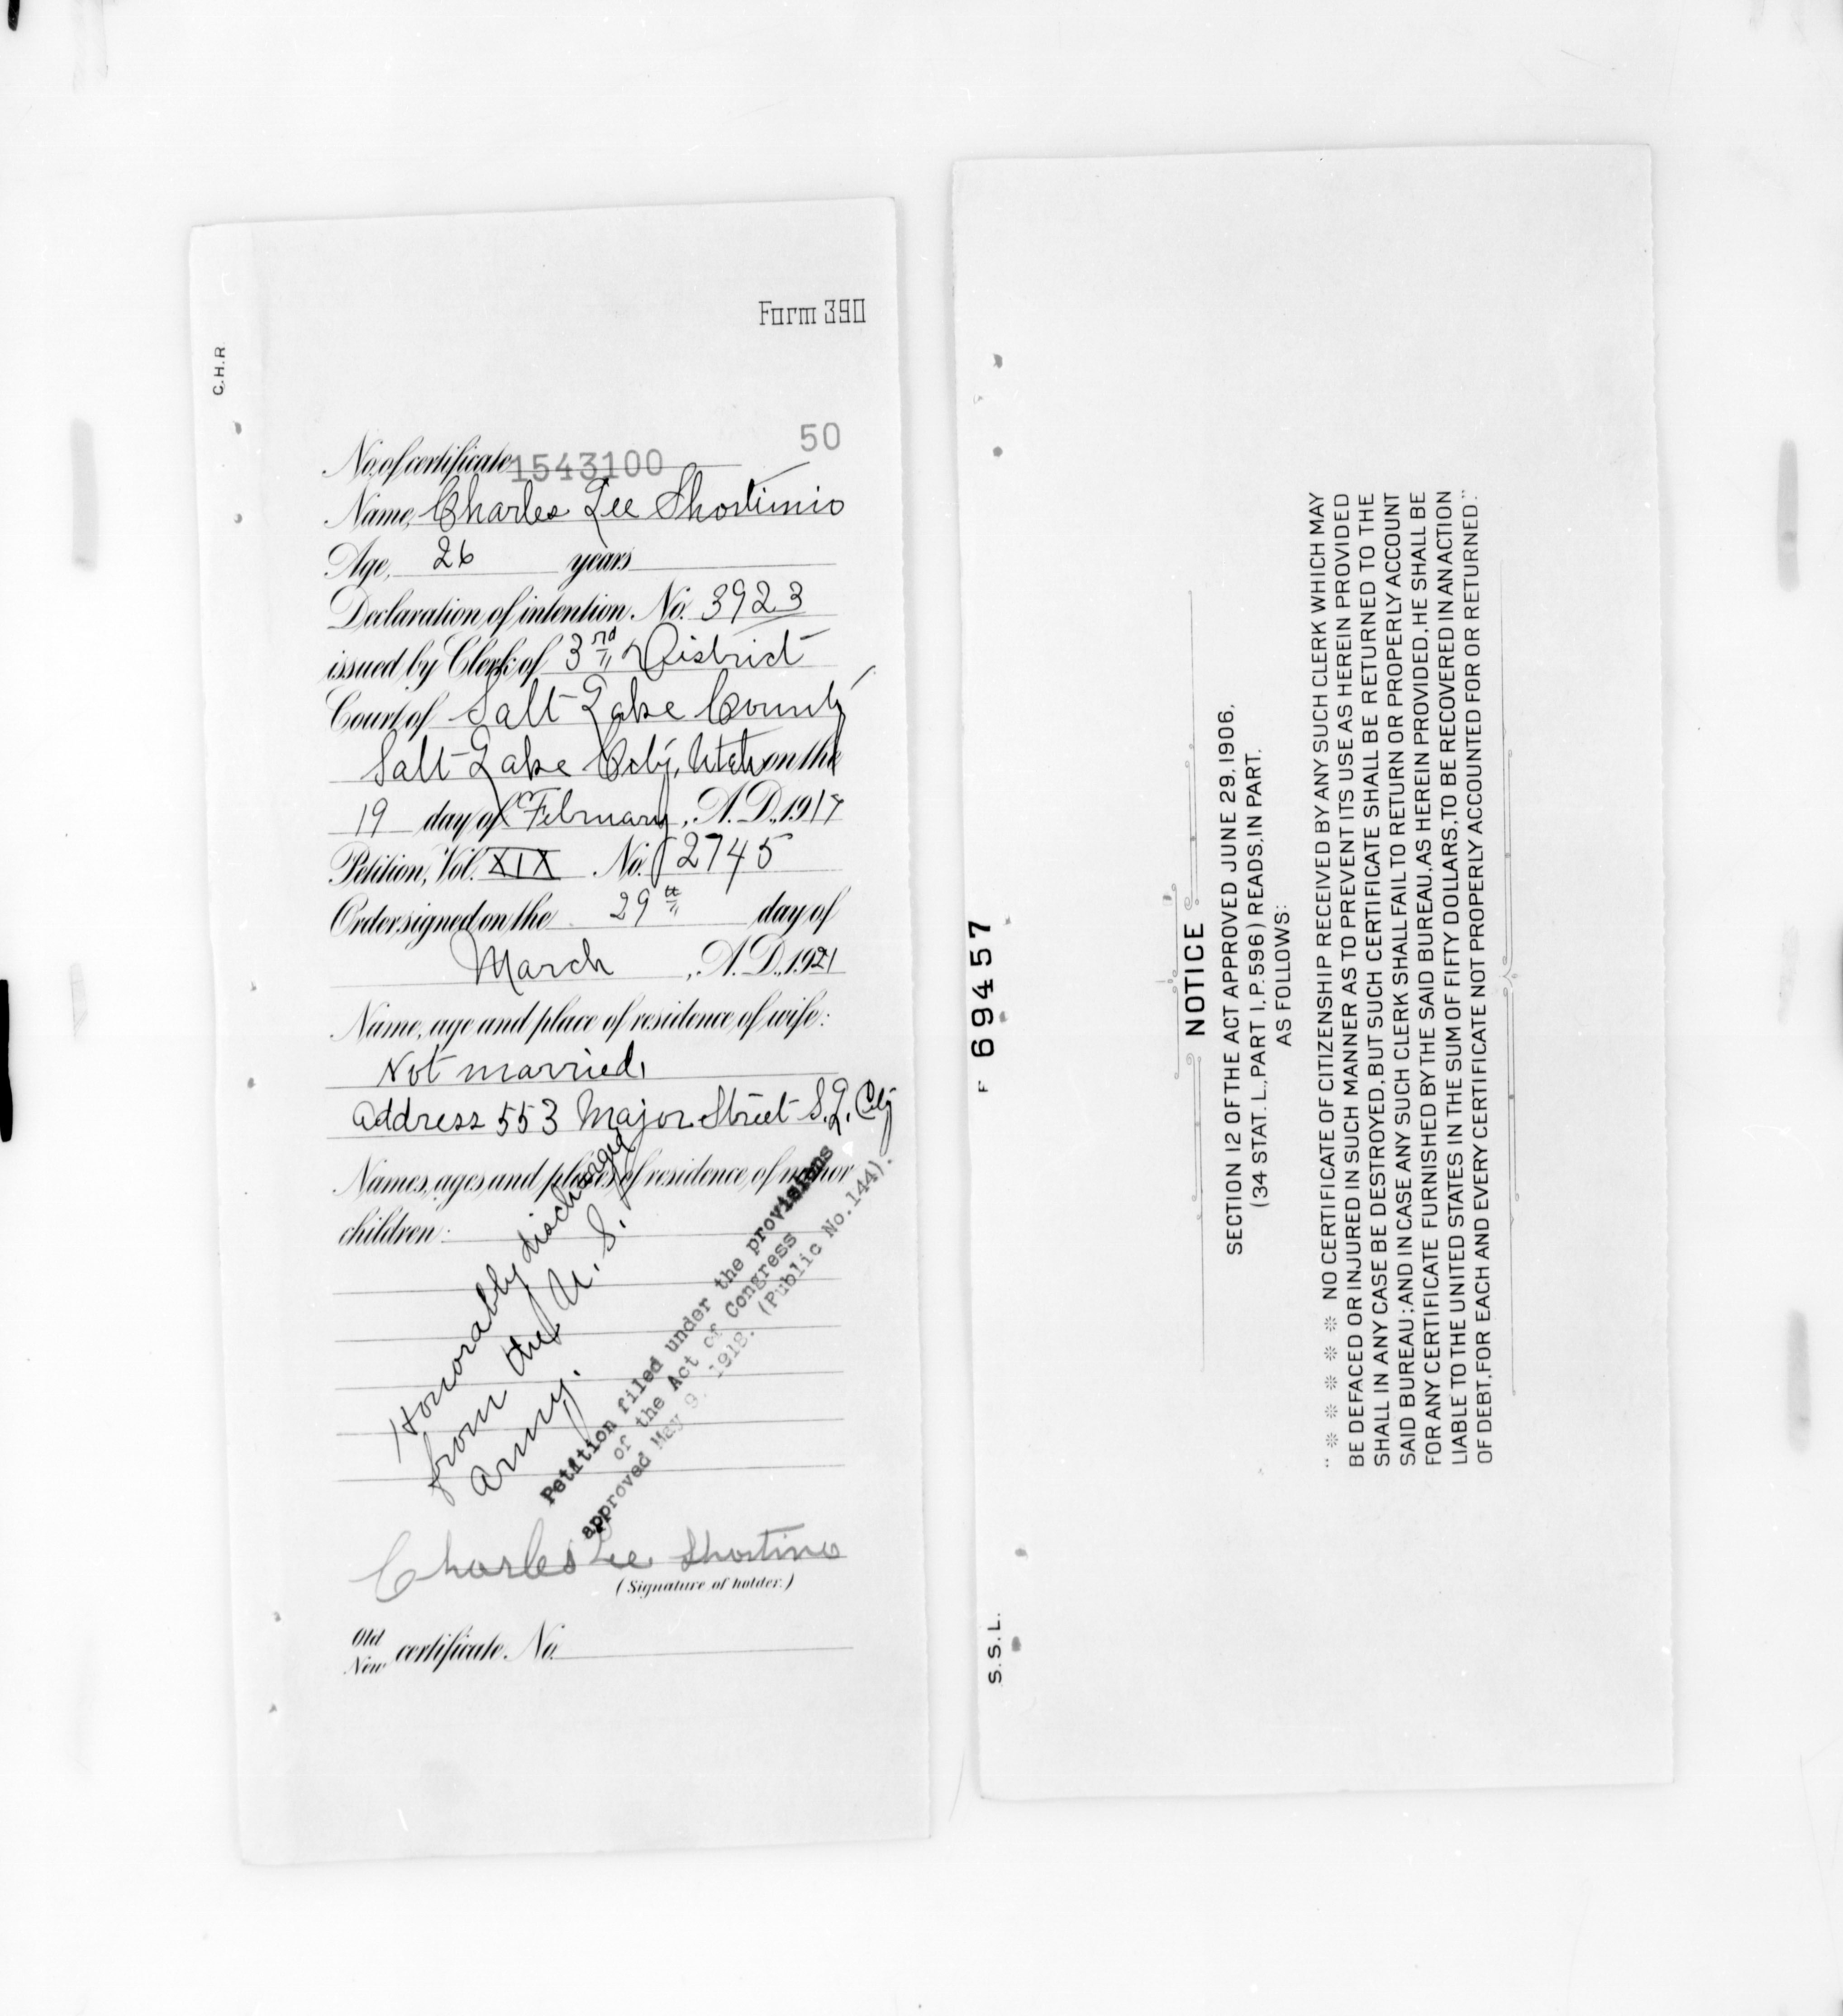 Form 390
C.H.R.
50
No. of certificate 1543100
Name, Charles Lee Shostinio
Age, 26 years
Declaration of intention. No. 3923
issued by Clerk of 3rd District
Court of Salt Lake County
Salt Lake City, Utah on the
19 day of February, A.D., 1917
Petition, Vol. XIX No. 2745
Order signed on the 29th day of
March, A.D., 1921
Name, age and place of residence of wife:
Not married,
Address 553 Major Street S.L. City
Names, ages and places of residence of minor
children:
Honorably discharged
from the U.S.
Army.
Petition filed under the provisions
of the Act of Congress
approved May 9, 1918. (Public No.144).
Charles Lee Shostino
(Signature of holder.)
Old
New certificate. No.
F 69457
S.S.L.
NOTICE
SECTION 12 OF THE ACT APPROVED JUNE 29, 1906,
(34 STAT. L., PART I, P. 596) READS, IN PART,
AS FOLLOWS:
" ※ ※ ※ ※ ※ NO CERTIFICATE OF CITIZENSHIP RECEIVED BY ANY SUCH CLERK WHICH MAY
BE DEFACED OR INJURED IN SUCH MANNER AS TO PREVENT ITS USE AS HEREIN PROVIDED
SHALL IN ANY CASE BE DESTROYED, BUT SUCH CERTIFICATE SHALL BE RETURNED TO THE
SAID BUREAU; AND IN CASE ANY SUCH CLERK SHALL FAIL TO RETURN OR PROPERLY ACCOUNT
FOR ANY CERTIFICATE FURNISHED BY THE SAID BUREAU, AS HEREIN PROVIDED, HE SHALL BE
LIABLE TO THE UNITED STATES IN THE SUM OF FIFTY DOLLARS, TO BE RECOVERED IN AN ACTION
OF DEBT, FOR EACH AND EVERY CERTIFICATE NOT PROPERLY ACCOUNTED FOR OR RETURNED."